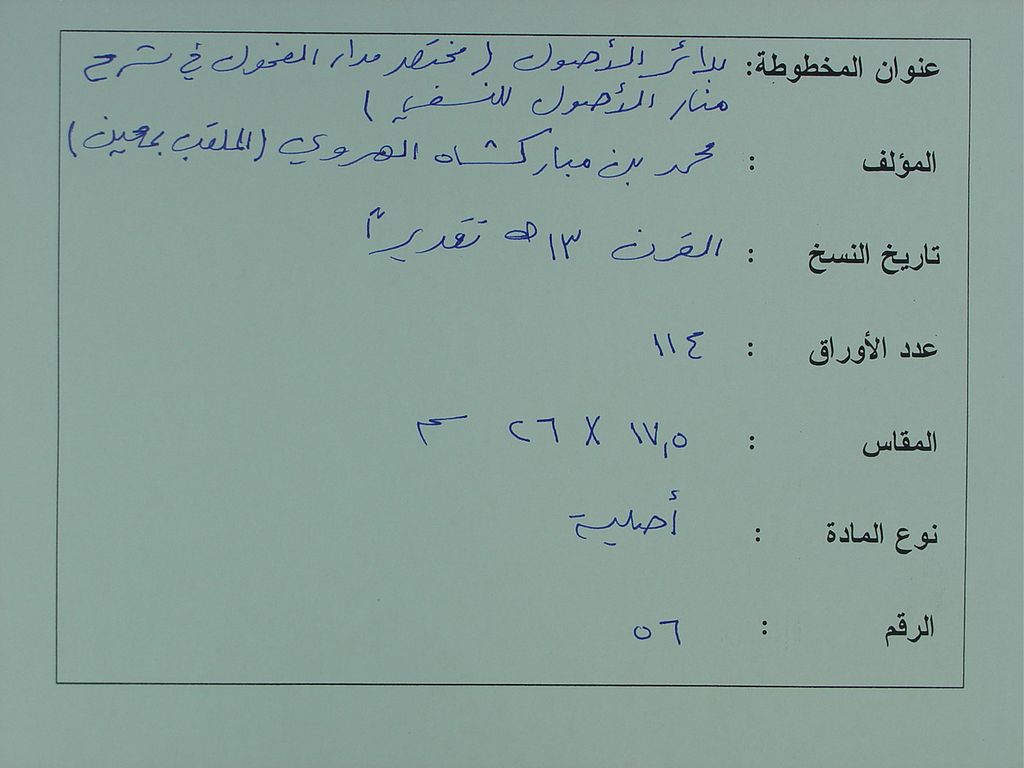 عنوان المخطوطة: بدائر الأصول (مختصر مدار الفحول في شرح
منار الأصول للنسفي)
المؤلف : محمد بن مباركشاه الهروي (الملقب بمعين)
تاريخ النسخ : القرن ١٣ه تقديراً
عدد الأوراق : ١١٤
المقاس : ١٧,٥ X ٢٦ سم
نوع المادة : أصلية
الرقم : ٥٦